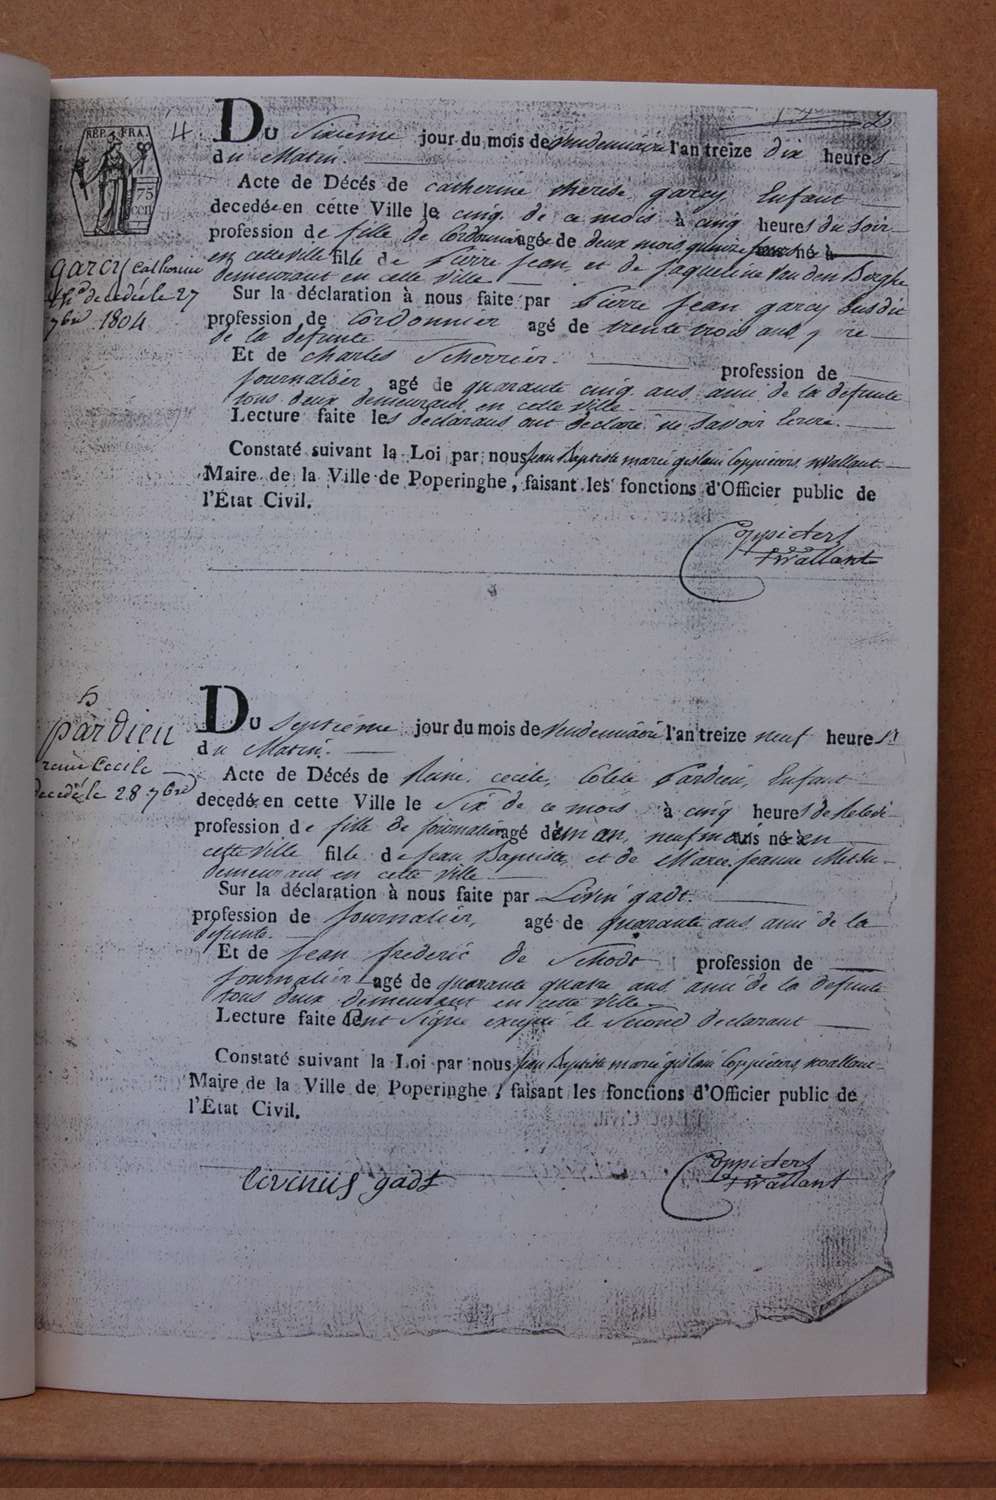 REP. FRA.
75
cen
4
Du Sixieme jour du mois de vendemiaire l'an treize dix heures
du Matin.
Acte de Décés de catherine therese garcy Enfant
decedé en cette Ville le cinq de ce mois à cinq heures du Soir
profession de fille de Cordonnier agé de deux mois quinze jours né à
en cette ville fille de Pierre Jean et de Jaqueline Van den Berghe
demeurant en cette ville
garcy catherine
decedée le 27
7bre 1804
Sur la déclaration à nous faite par Pierre Jean garcy susdit
profession de Cordonnier agé de trente trois ans, pere
de la defunte
Et de Charles Scherrier profession de
Journalier, agé de quarante cinq ans ami de la defunte
tous deux demeurant en cette ville
Lecture faite les declarans ont declaré ne Savoir Ecrire.
Constaté suivant la Loi par nous Jean Baptiste marie gislain Coppieters, wallant
Maire de la Ville de Poperinghe, faisant les fonctions d'Officier public de
l'État Civil.
Coppieters
twallant
5
Du Septieme jour du mois de vendemiaire l'an treize neuf heures
du Matin.
pardieu
reine Cecile
decedée le 28 7bre
Acte de Décés de Reine, cecile, Colete Pardieu, Enfant
decedé en cette Ville le Six de ce mois à cinq heures de Relevé
profession de fille de journalier agé d'un an, neuf mois ans né en
cette ville fille de Jean Baptiste et de Marie Jeanne
demeurant en cette ville
Sur la déclaration à nous faite par Livin gadt.
profession de Journalier, agé de quarante ans ami de la
defunte.
Et de Jean frederic de Schodt profession de
Journalier agé de quarante quatre ans ami de la defunte
tous deux demeurant en cette ville
Lecture faite ont Signé excepté le Second declarant
Constaté suivant la Loi par nous Jean Baptiste marie gislain Coppieters, wallant
Maire de la Ville de Poperinghe, faisant les fonctions d'Officier public de
l'État Civil.
livinus gadt
Coppieters
twallant